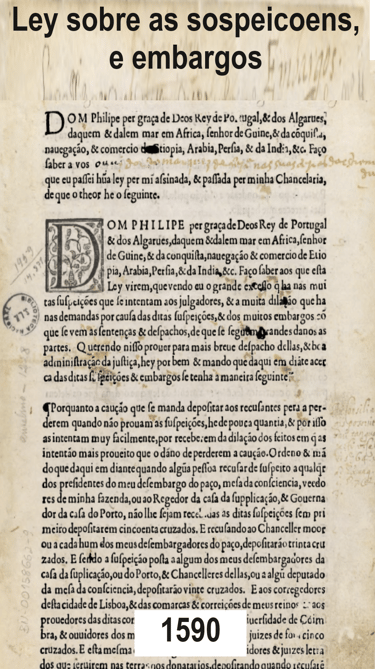 Ley sobre as sospeicoens,
e embargos
DOM Philipe per graça de Deos Rey de Portugal, & dos Algarues,
daquem & dalem mar em Africa, senhor de Guine, & da cõquista,
nauegação, & comercio de Etiopia, Arabia, Persia, & da India, &c. Faço
saber a vos
que eu passei hũa ley per mi assinada, & passada per minha Chancelaria,
de que o theor he o seguinte.
DOM PHILIPE per graça de Deos Rey de Portugal
& dos Algarues, daquem & dalem mar em Africa, senhor
de Guine, & da conquista, nauegação & comercio de Etio
pia, Arabia, Persia, & da India, &c. Faço saber aos que esta
Ley virem, que vendo eu o grande excesso q̃ ha nas mui
tas suspeições que se intentam aos julgadores, & a muita dilação que ha
nas demandas por causa das ditas suspeições, & dos muitos embargos cõ
que se vem as sentenças & despachos, de que se seguem grandes danos as
partes. Querendo nisso prouer para mais breue despacho dellas, & boa
administração da justiça, hey por bem & mando que daqui em diãte acer
ca das ditas suspeições & embargos se tenha a maneira seguinte.
¶Porquanto a caução que se manda depositar aos recusantes pera a per-
derem quando não prouam as suspeições, he de pouca quantia, & por isso
as intentam muy facilmente, por receberem da dilação dos feitos em q̃ as
intentão mais proueito que o dãno de perderem a caução. Ordeno & mã
do que daqui em diante quando algũa pessoa recusar de suspeito a qualq̃r
dos presidentes do meu desembargo do paço, mesa da consciencia, veedo
res de minha fazenda, ou ao Regedor da casa da supplicação, & Gouerna
dor da casa do Porto, não lhe sejam recebidas as ditas suspeições sem pri
meiro depositarem cincoenta cruzados. E recusando ao Chanceller moor
ou a cada hum dos meus desembargadores do paço, depositarão trinta cru
zados. E sendo a suspeição posta a algum dos meus desembargadores da
casa da suplicação, ou do Porto, & Chancelleres dellas, ou a algũ deputado
da mesa da consciencia, depositarão vinte cruzados. E aos corregedores
desta cidade de Lisboa, & das comarcas & correições de meus reinos
prouedores das ditas com uersidade de Coim
bra, & ouuidores dos m juizes de fo cinco
cruzados. E esta mesma juizes letra
dos que seruirem nas terras dos donatarios, depositando quando recusarẽ
1590